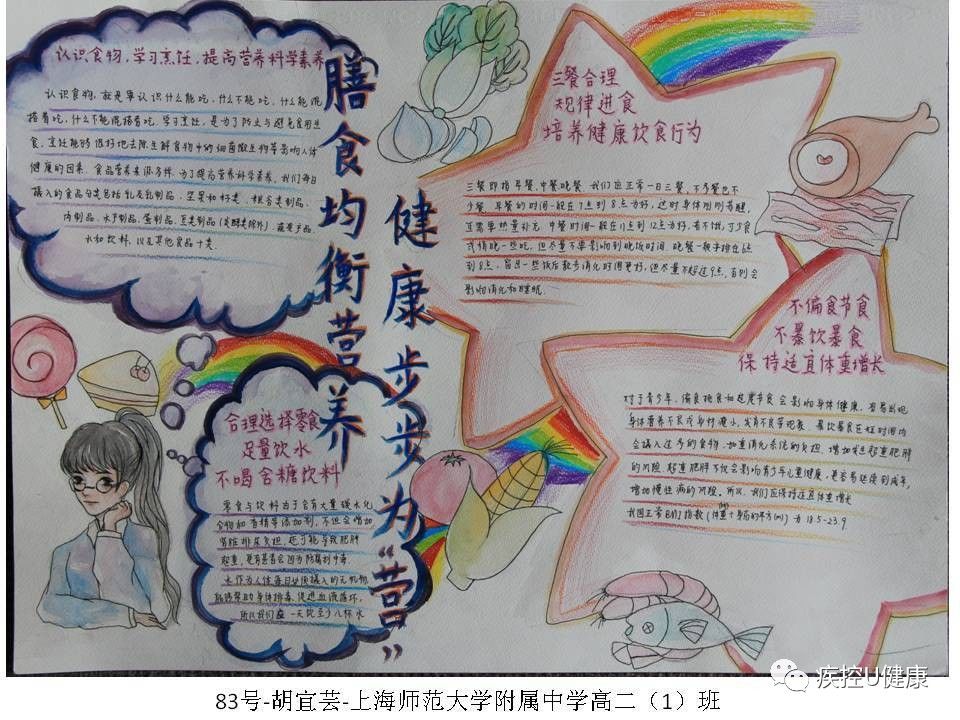 认识食物,学习烹饪,提高营养科学素养
认识食物,就是要认识什么能吃,什么不能吃,什么能混
搭着吃,什么不能混搭着吃。学习烹饪,是为了防止与避免食用生
食,烹饪能够很好地去除生鲜食物中的细菌微生物等影响人体
健康的因素。食品营养来源多样,为了提高营养科学素养,我们每日
摄入的食品分类包括乳及乳制品,坚果和籽类,粮谷类制品,
肉制品,水产制品,蛋制品,豆类制品(发酵类除外),蔬菜产品
水和饮料,以及其他食品十类。
膳食均衡营养
健康步步为“营”
三餐合理
规律进食
培养健康饮食行为
三餐即指早餐,中餐晚餐,我们应正常一日三餐,不多餐也不
少餐,早餐的时间一般在7点到8点为好,这时身体刚刚苏醒,
正需要热量补充。中餐时间一般在11点到12点为好,若不饿,可少食
或稍晚一些吃,但尽量不要影响到晚饭时间,晚餐一般安排在6点
到8点,留出一些饭后散步消化时间更好,但尽量不超过9点,否则会
影响消化和睡眠。
不偏食节食
不暴饮暴食
保持适宜体重增长
对于青少年,偏食挑食和过度节食会影响身体健康,容易出现
身体营养不良或身材瘦小,发育不良等现象。暴饮暴食在短时间内
会摄入过多的食物,加重消化系统的负担,增加发生超重肥胖
的风险。超重肥胖不仅会影响青少年儿童健康,更容易延续到成年,
增加慢性病的风险。所以,我们应保持适宜体重增长
我国正常BMI指数(体重(kg)÷身高的平方(m))为18.5-23.9
合理选择零食
足量饮水
不喝含糖饮料
零食与饮料由于含有大量碳水化
合物和香精等添加剂,不但会增加
肾脏排尿负担,还可能导致肥胖
超重,更有甚者会因为防腐剂中毒
水作为人体每日必须摄入的无机物
能够帮助身体排毒,促进血液循环,
所以我们应一天饮至少八杯水
疾控U健康
83号-胡宜芸-上海师范大学附属中学高二(1)班